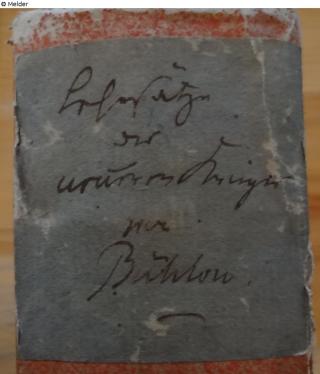 © Melder
Lehrsätze
des
neueren Krieges
von
Bühlow.